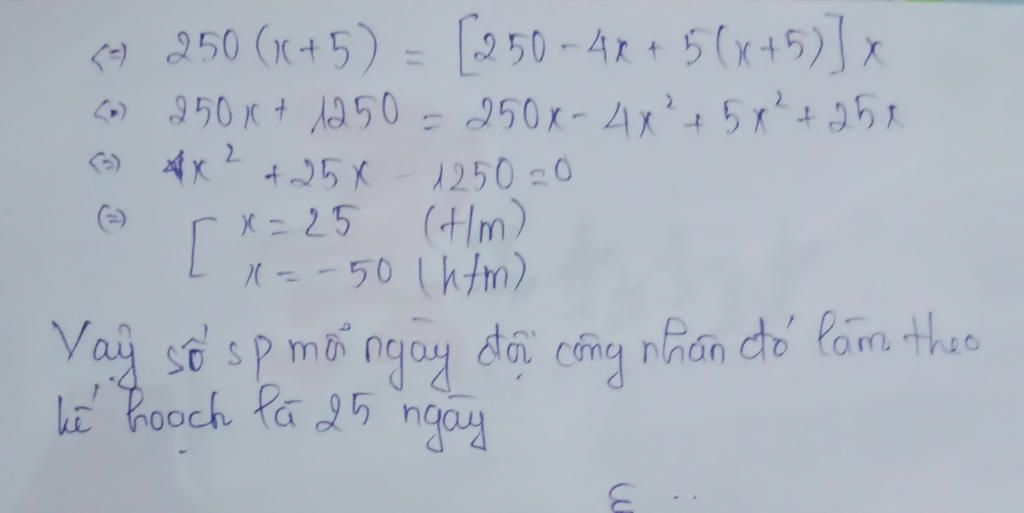 <=> 250 (x+5) = [250 - 4x + 5(x+5)] x
<=> 250x + 1250 = 250x - 4x² + 5x² + 25x
<=> x² + 25x - 1250 = 0
<=> [ x = 25 (t/m)
x = -50 (ktm)
Vậy số sp mỗi ngày đội công nhân đó làm theo
kế hoạch là 25 ngày